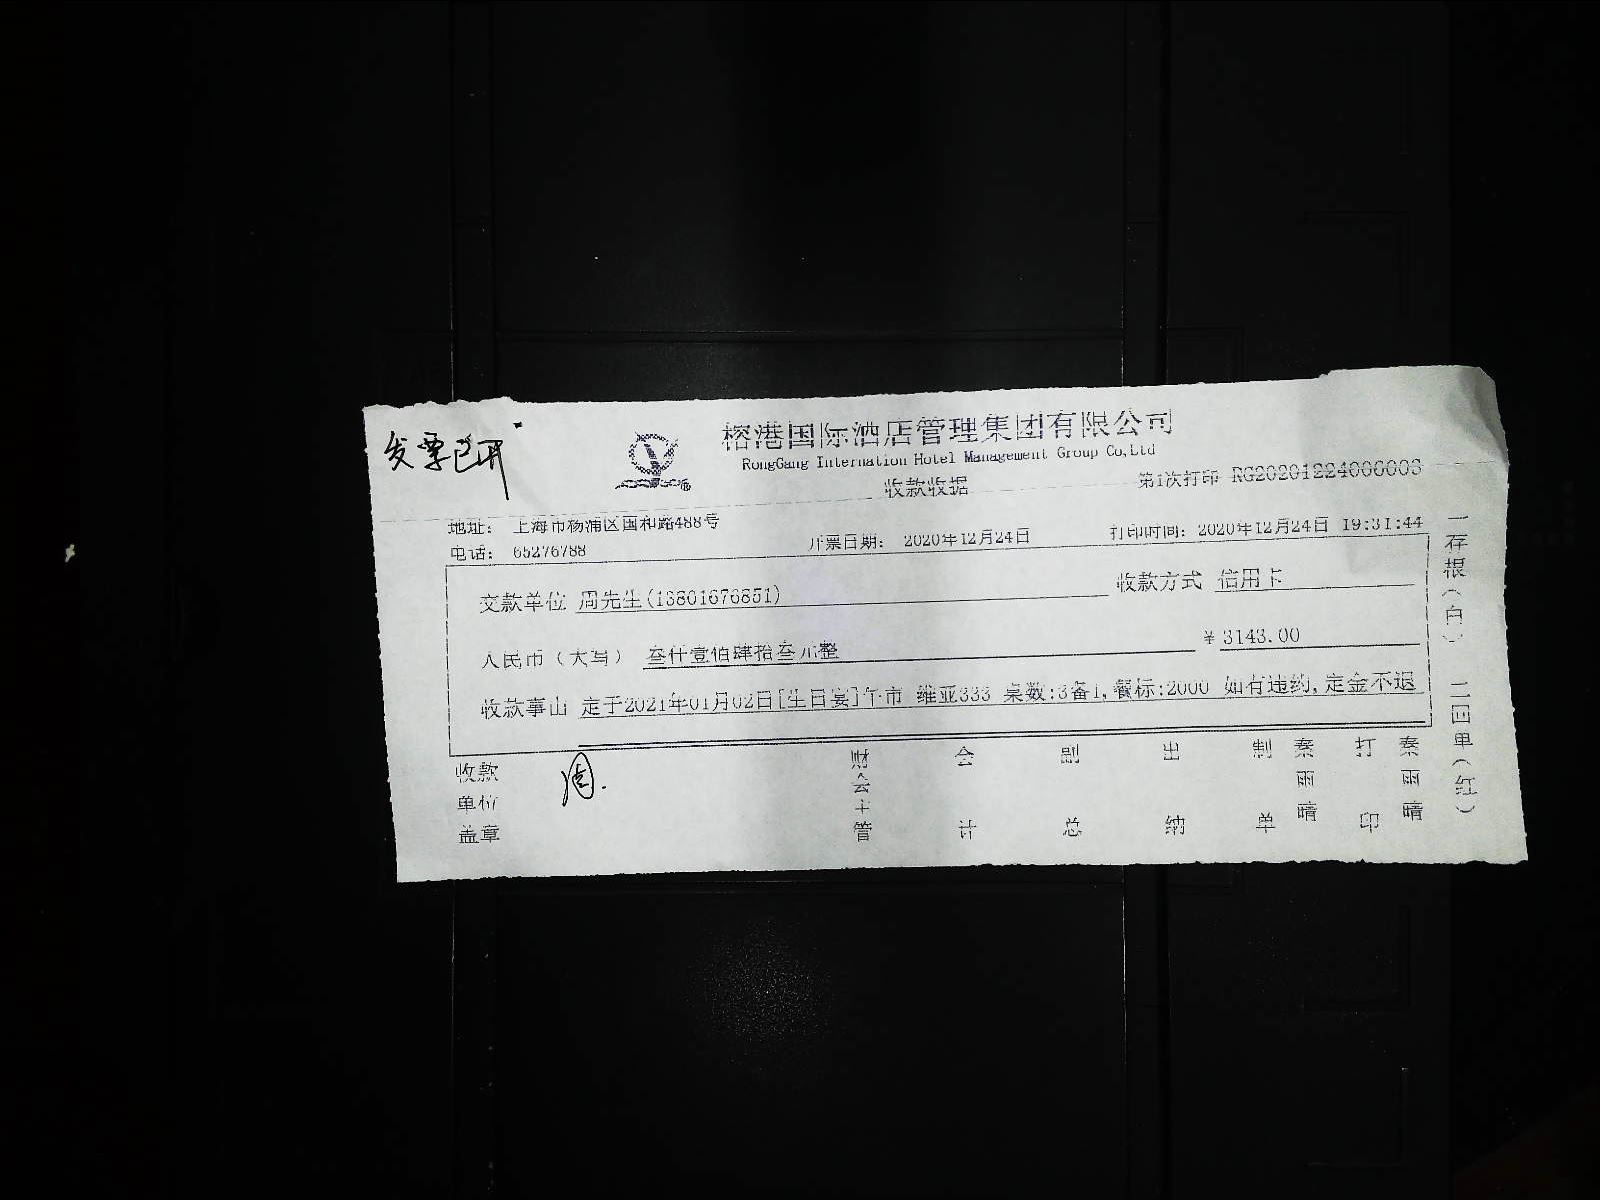 发票已开
榕港国际酒店管理集团有限公司
RongGang Internation Hotel Management Group Co,Ltd
收款收据
第1次打印 RG20201224000003
地址: 上海市杨浦区国和路488号
电话: 65276788
开票日期: 2020年12月24日
打印时间: 2020年12月24日 19:31:44
交款单位 周先生(13801676851)
收款方式 信用卡
人民币(大写) 叁仟壹佰肆拾叁元整
¥ 3143.00
收款事由 定于2021年01月02日[生日宴]午市 维亚333 桌数:3备1,餐标:2000 如有违约,定金不退
收款单位盖章
周.
财会主管
会计
副总
出纳
制单
秦雨晴
打印
秦雨晴
一存根(白) 二回单(红)